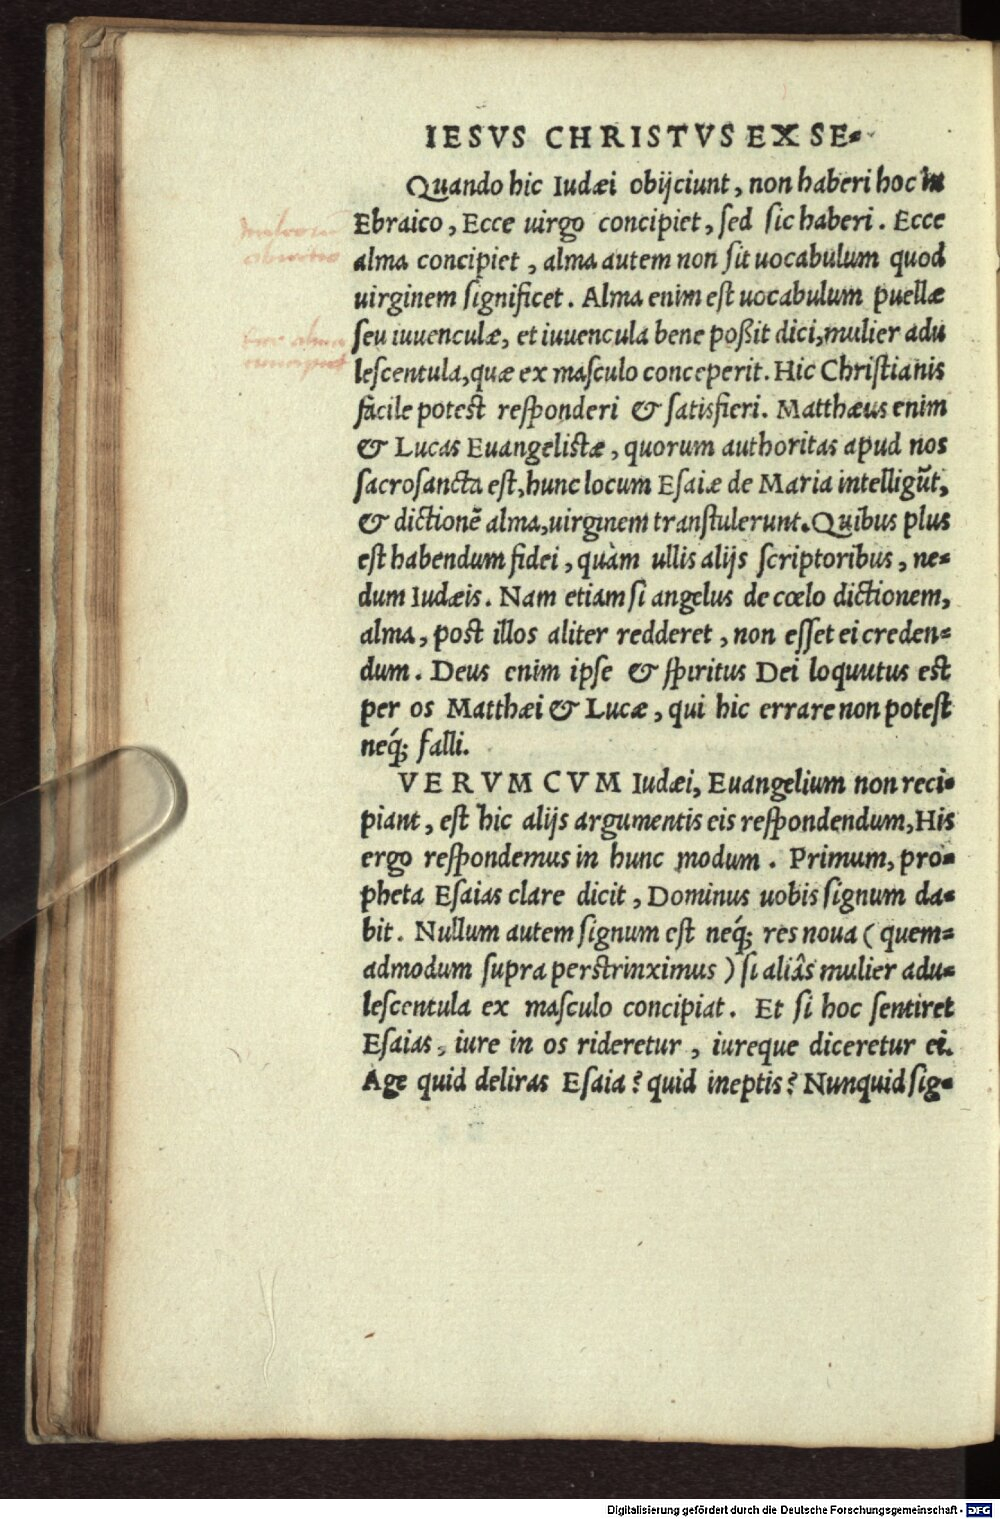 IESVS CHRISTVS EX SE-
Quando hic Iudæi obijciunt, non haberi hoc in
Ebraico, Ecce uirgo concipiet, sed sic haberi. Ecce
alma concipiet, alma autem non sit uocabulum quod
uirginem significet. Alma enim est uocabulum puellæ
seu iuuenculæ, et iuuencula bene poßit dici, mulier adu
lescentula, quæ ex masculo conceperit. Hic Christianis
facile potest responderi & satisfieri. Matthæus enim
& Lucas Euangelistæ, quorum authoritas apud nos
sacrosancta est, hunc locum Esaiæ de Maria intelligūt,
& dictionē alma, uirginem transtulerunt. Quibus plus
est habendum fidei, quàm ullis alijs scriptoribus, ne-
dum Iudæis. Nam etiam si angelus de cœlo dictionem,
alma, post illos aliter redderet, non esset ei creden-
dum. Deus enim ipse & spiritus Dei loquutus est
per os Matthæi & Lucæ, qui hic errare non potest
neq́; falli.
VERVM CVM Iudæi, Euangelium non reci-
piant, est hic alijs argumentis eis respondendum, His
ergo respondemus in hunc modum. Primum, pro-
pheta Esaias clare dicit, Dominus uobis signum da-
bit. Nullum autem signum est neq́; res noua (quem-
admodum supra perstrinximus) si aliâs mulier adu-
lescentula ex masculo concipiat. Et si hoc sentiret
Esaias, iure in os rideretur, iureque diceretur ei.
Age quid deliras Esaia? quid ineptis? Nunquid sig-
Digitalisierung gefördert durch die Deutsche Forschungsgemeinschaft - DFG